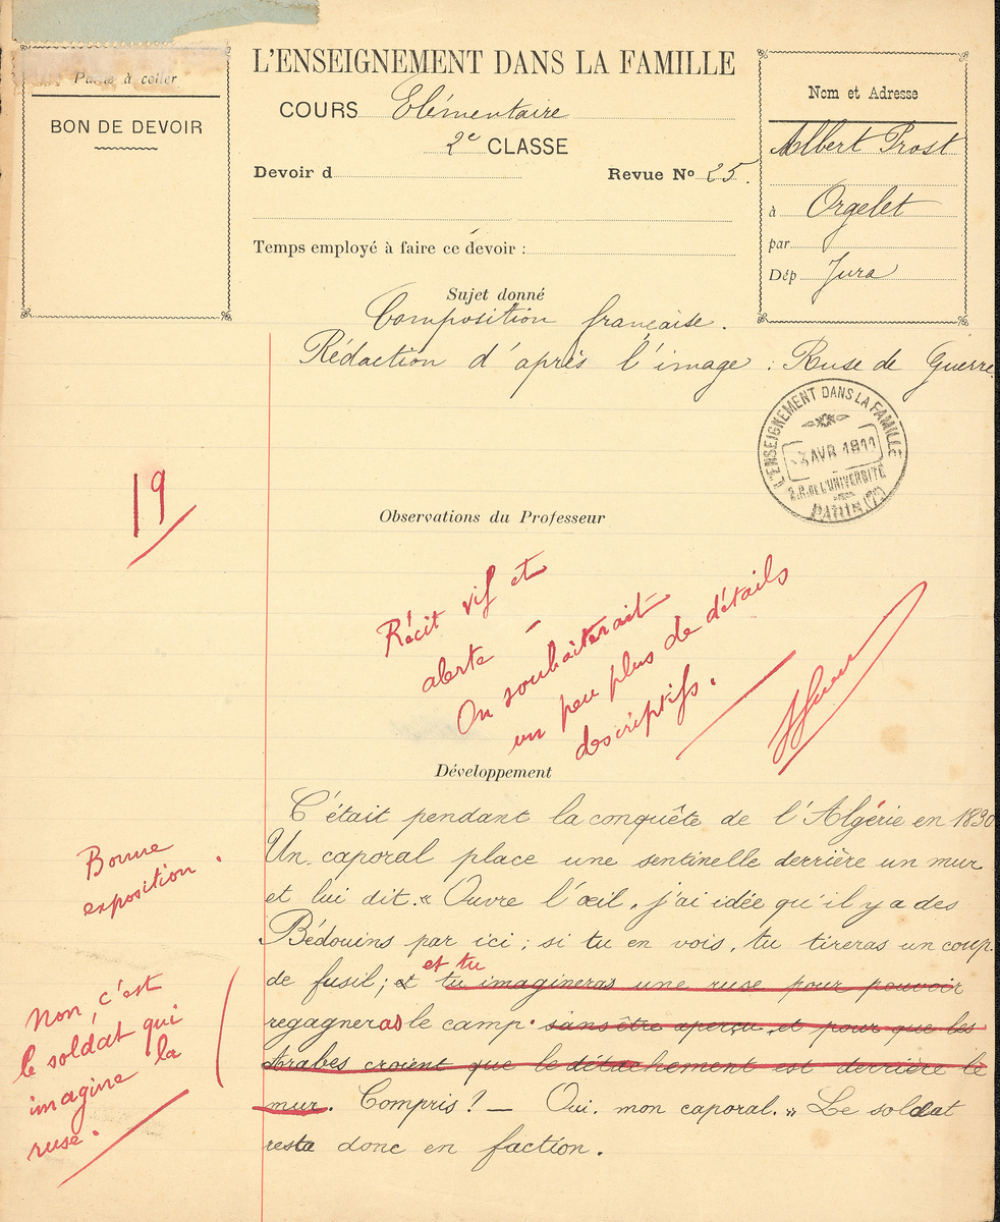 Patte à coller
BON DE DEVOIR
L'ENSEIGNEMENT DANS LA FAMILLE
COURS Elémentaire
2e CLASSE
Devoir d
Revue No 25.
Temps employé à faire ce devoir :
Nom et Adresse
Albert Prost
à Orgelet
par
Dép Jura
Sujet donné
Composition française.
Rédaction d'après l'image : Ruse de Guerre
L'ENSEIGNEMENT DANS LA FAMILLE
3 AVR 1911
2. R. de L'UNIVERSITÉ
PARIS (7e)
19
Observations du Professeur
Récit vif et
alerte –
On souhaiterait
un peu plus de détails
descriptifs.
Développement
C'était pendant la conquête de l'Algérie en 1830
Un caporal place une sentinelle derrière un mur
et lui dit. « Ouvre l'œil, j'ai idée qu'il y a des
Bédouins par ici ; si tu en vois, tu tireras un coup
et tu
de fusil; et tu imagineras une ruse pour pouvoir
regagneras le camp. sans être aperçu, et pour que les
Arabes croient que le détachement est derrière le
mur. Compris ? — Oui, mon caporal. » Le soldat
resta donc en faction.
Bonne
exposition.
Non, c'est
le soldat qui
imagine la
ruse.